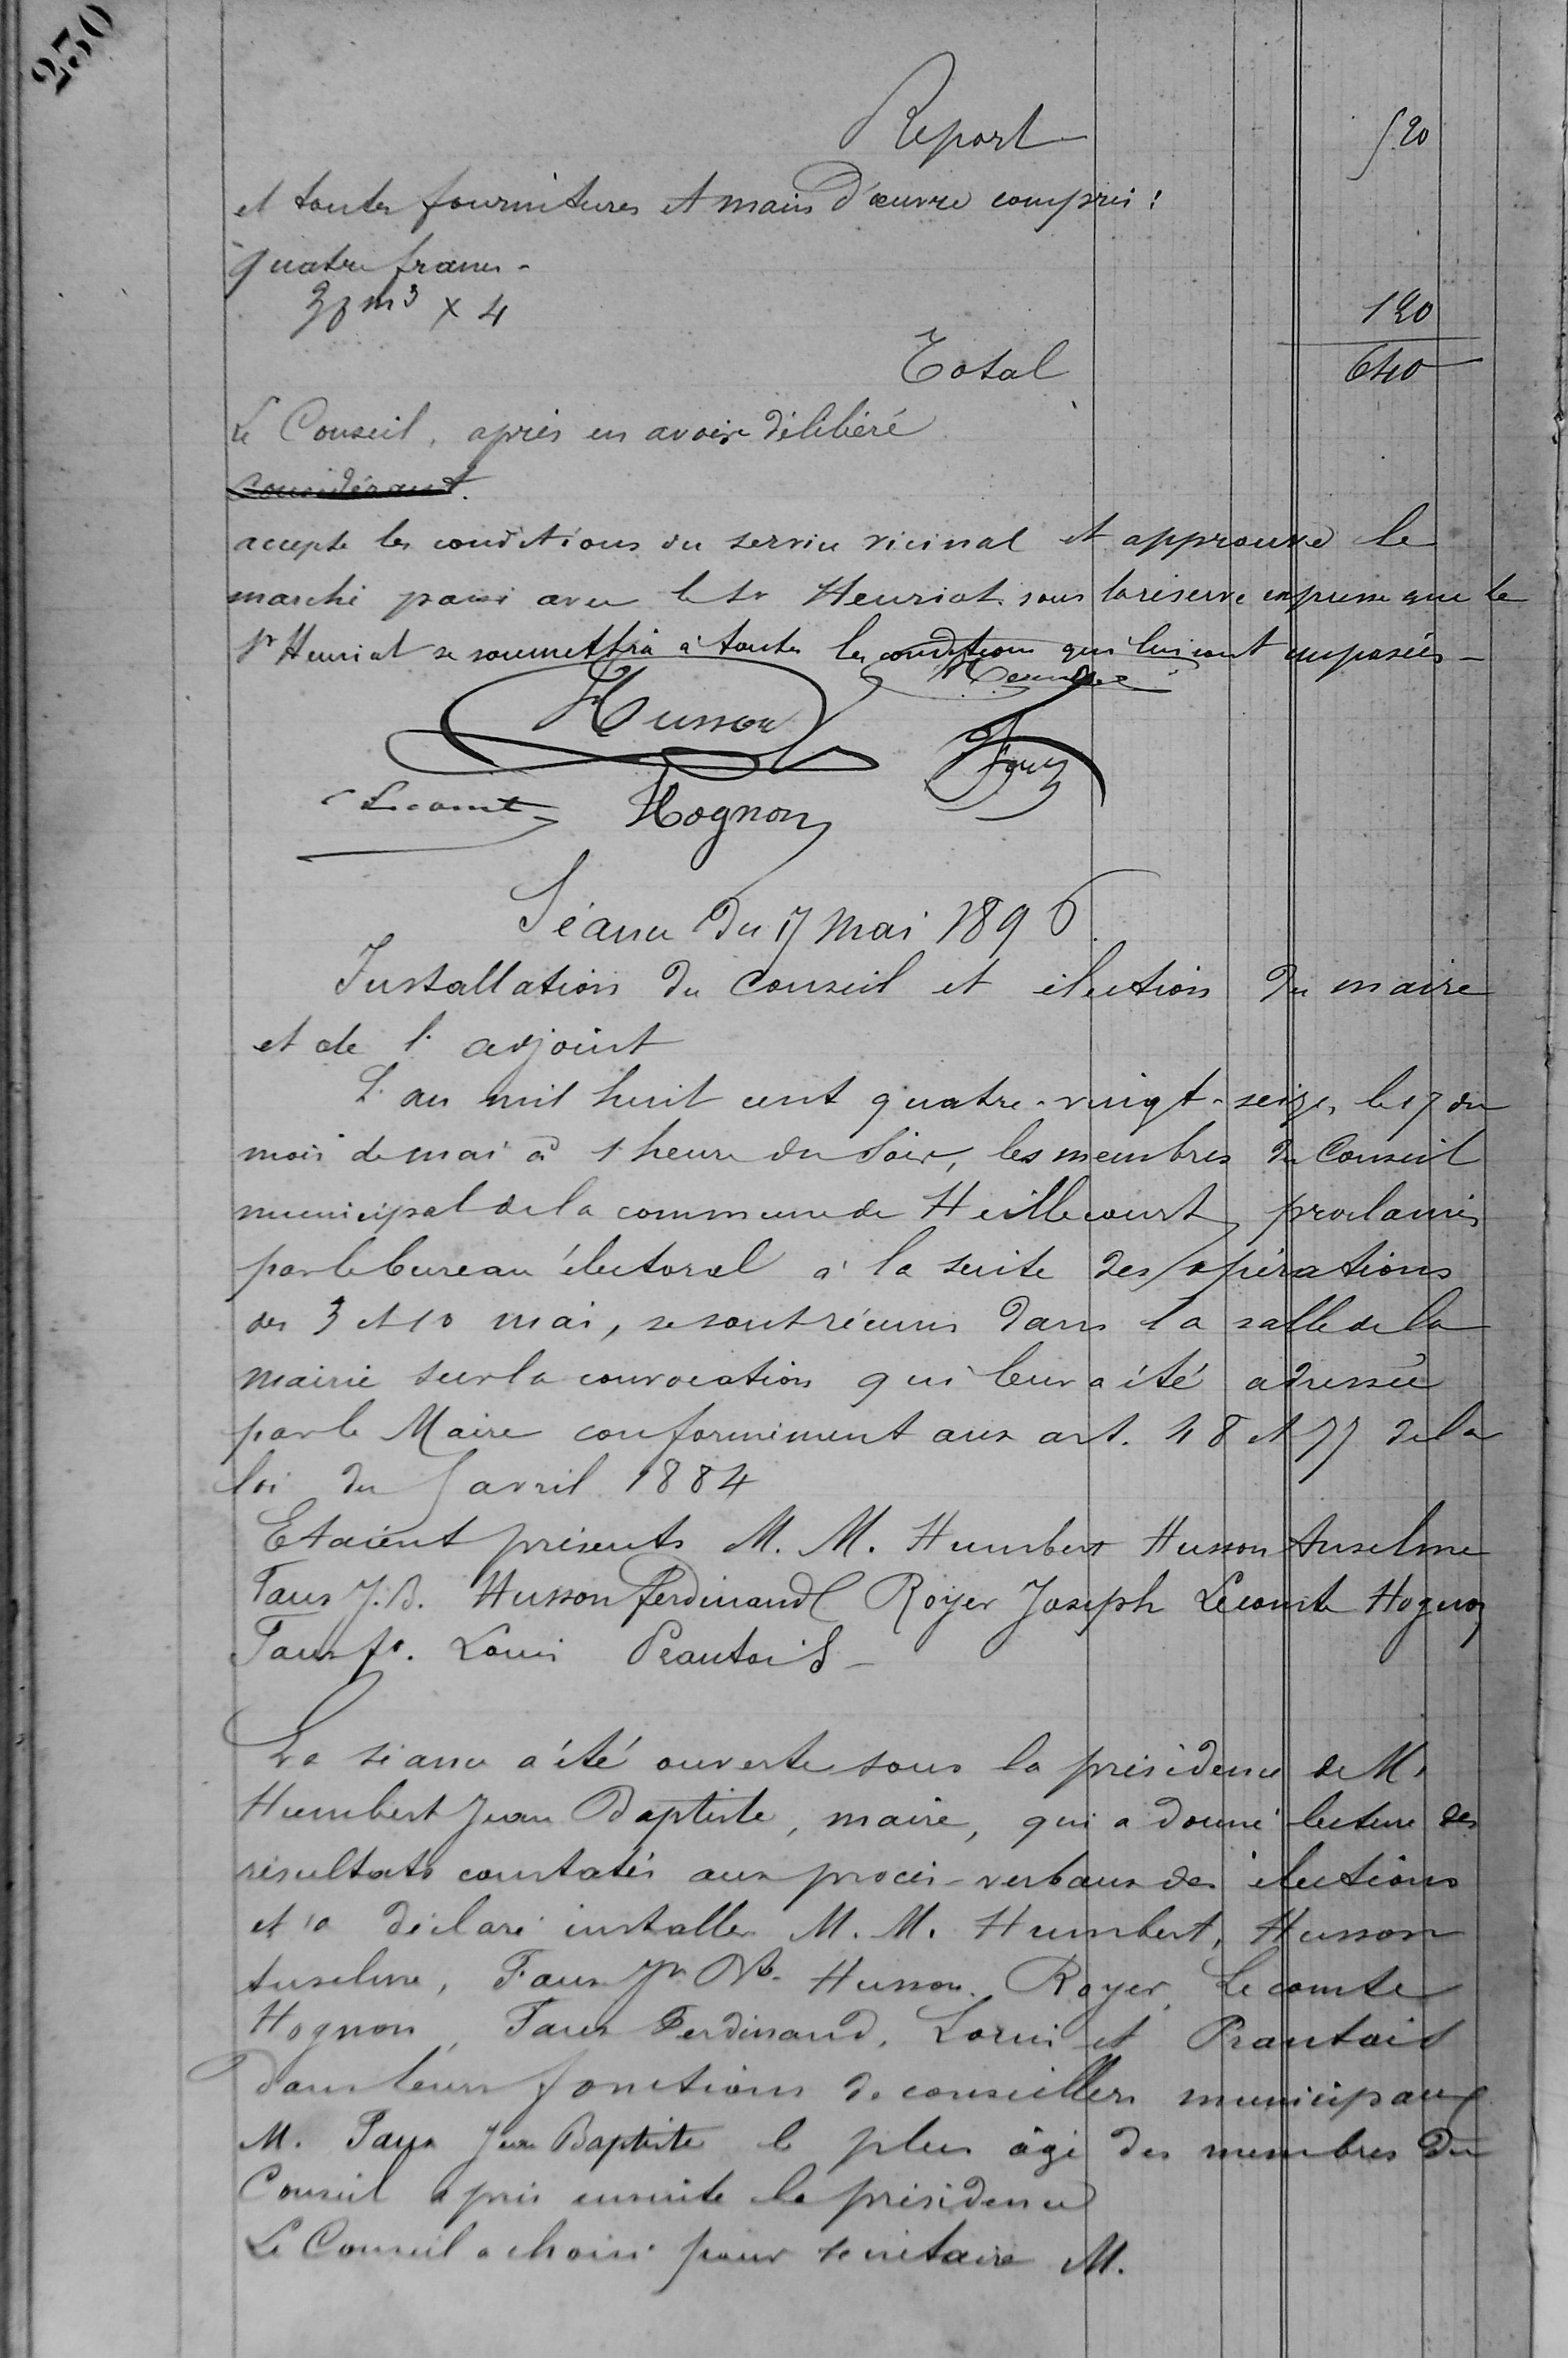 230
Report 520
et toutes fournitures et main d'œuvre compris :
quatre francs -
30 m3 x 4 120
Total 640
Le Conseil, après en avoir délibéré
considérant.
accepte les conditions du service vicinal et approuve le
marché passé avec le Sr Henriot sous la réserve expresse que le
Sr Henriot se soumettra à toutes les conditions qui lui sont imposées -
Husson
Lecomte Hognon
Séance du 17 mai 1896
Installation du Conseil et élection du maire
et de l'adjoint
L'an mil huit cent quatre-vingt-seize, le 17 du
mois de mai à 1 heure du soir, les membres du Conseil
municipal de la commune de Heillecourt, proclamés
par le bureau électoral à la suite des opérations
des 3 et 10 mai, se sont réunis dans la salle de la
mairie sur la convocation qui leur a été adressée
par le Maire conformément aux art. 48 et 77 de la
loi du 5 avril 1884
Etaient présents M. M. Humbert Husson Anselme
Faux J. B. Husson Ferdinand Royer Joseph Lecomte Hognon
Faux fd. Louis Prautois -
La séance a été ouverte sous la présidence de M.
Humbert Jean Baptiste, maire, qui a donné lecture des
résultats constatés aux procès-verbaux des élections
et a déclaré installer M. M. Humbert, Husson
Anselme, Faux Jn Bte Husson, Royer, Lecomte
Hognon, Faux Ferdinand, Louis et Prautois
dans leurs fonctions de conseillers municipaux
M. Faux Jean Baptiste le plus âgé des membres du
Conseil a pris ensuite la présidence
Le Conseil a choisi pour secrétaire M.